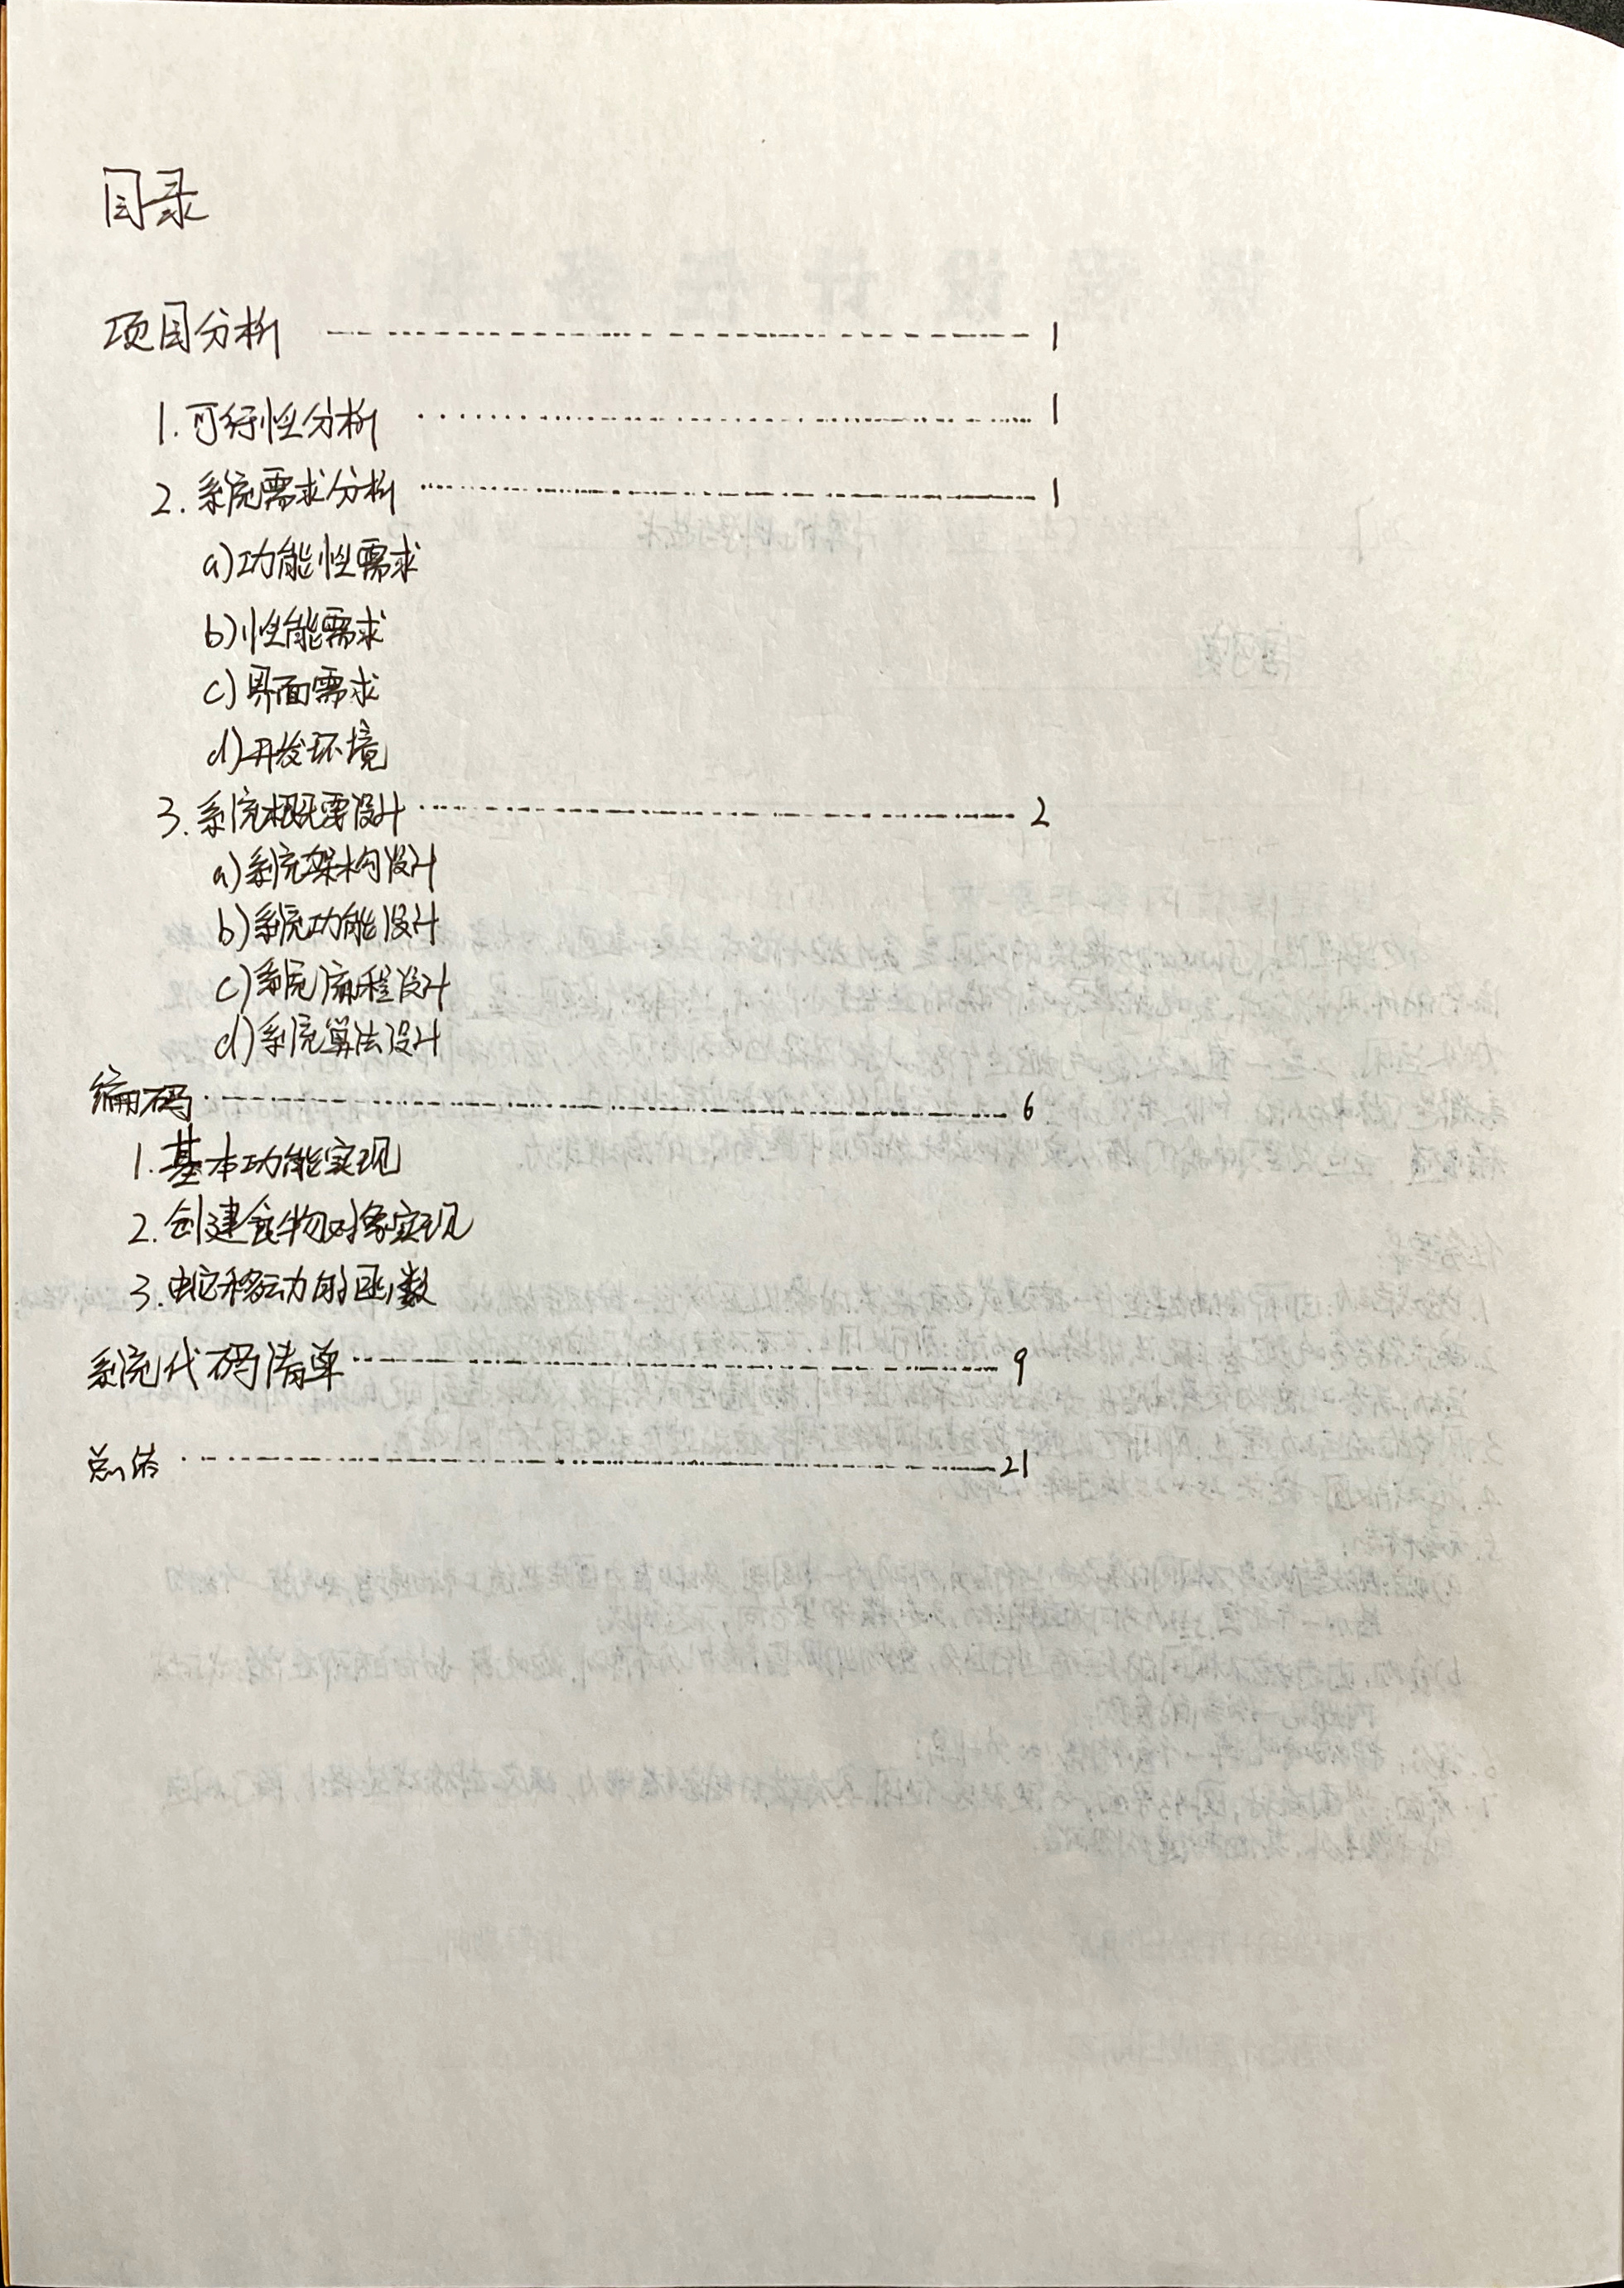 目录
项目分析 ------------------------ 1
1.可行性分析 ........................ 1
2.系统需求分析 ........................ 1
a)功能性需求
b)性能需求
c)界面需求
d)开发环境
3.系统概要设计 ........................ 2
a)系统架构设计
b)系统功能设计
c)系统流程设计
d)系统算法设计
编码 ........................ 6
1.基本功能实现
2.创建食物对象实现
3.蛇移动的函数
系统代码清单 ........................ 9
总结 ........................ 21